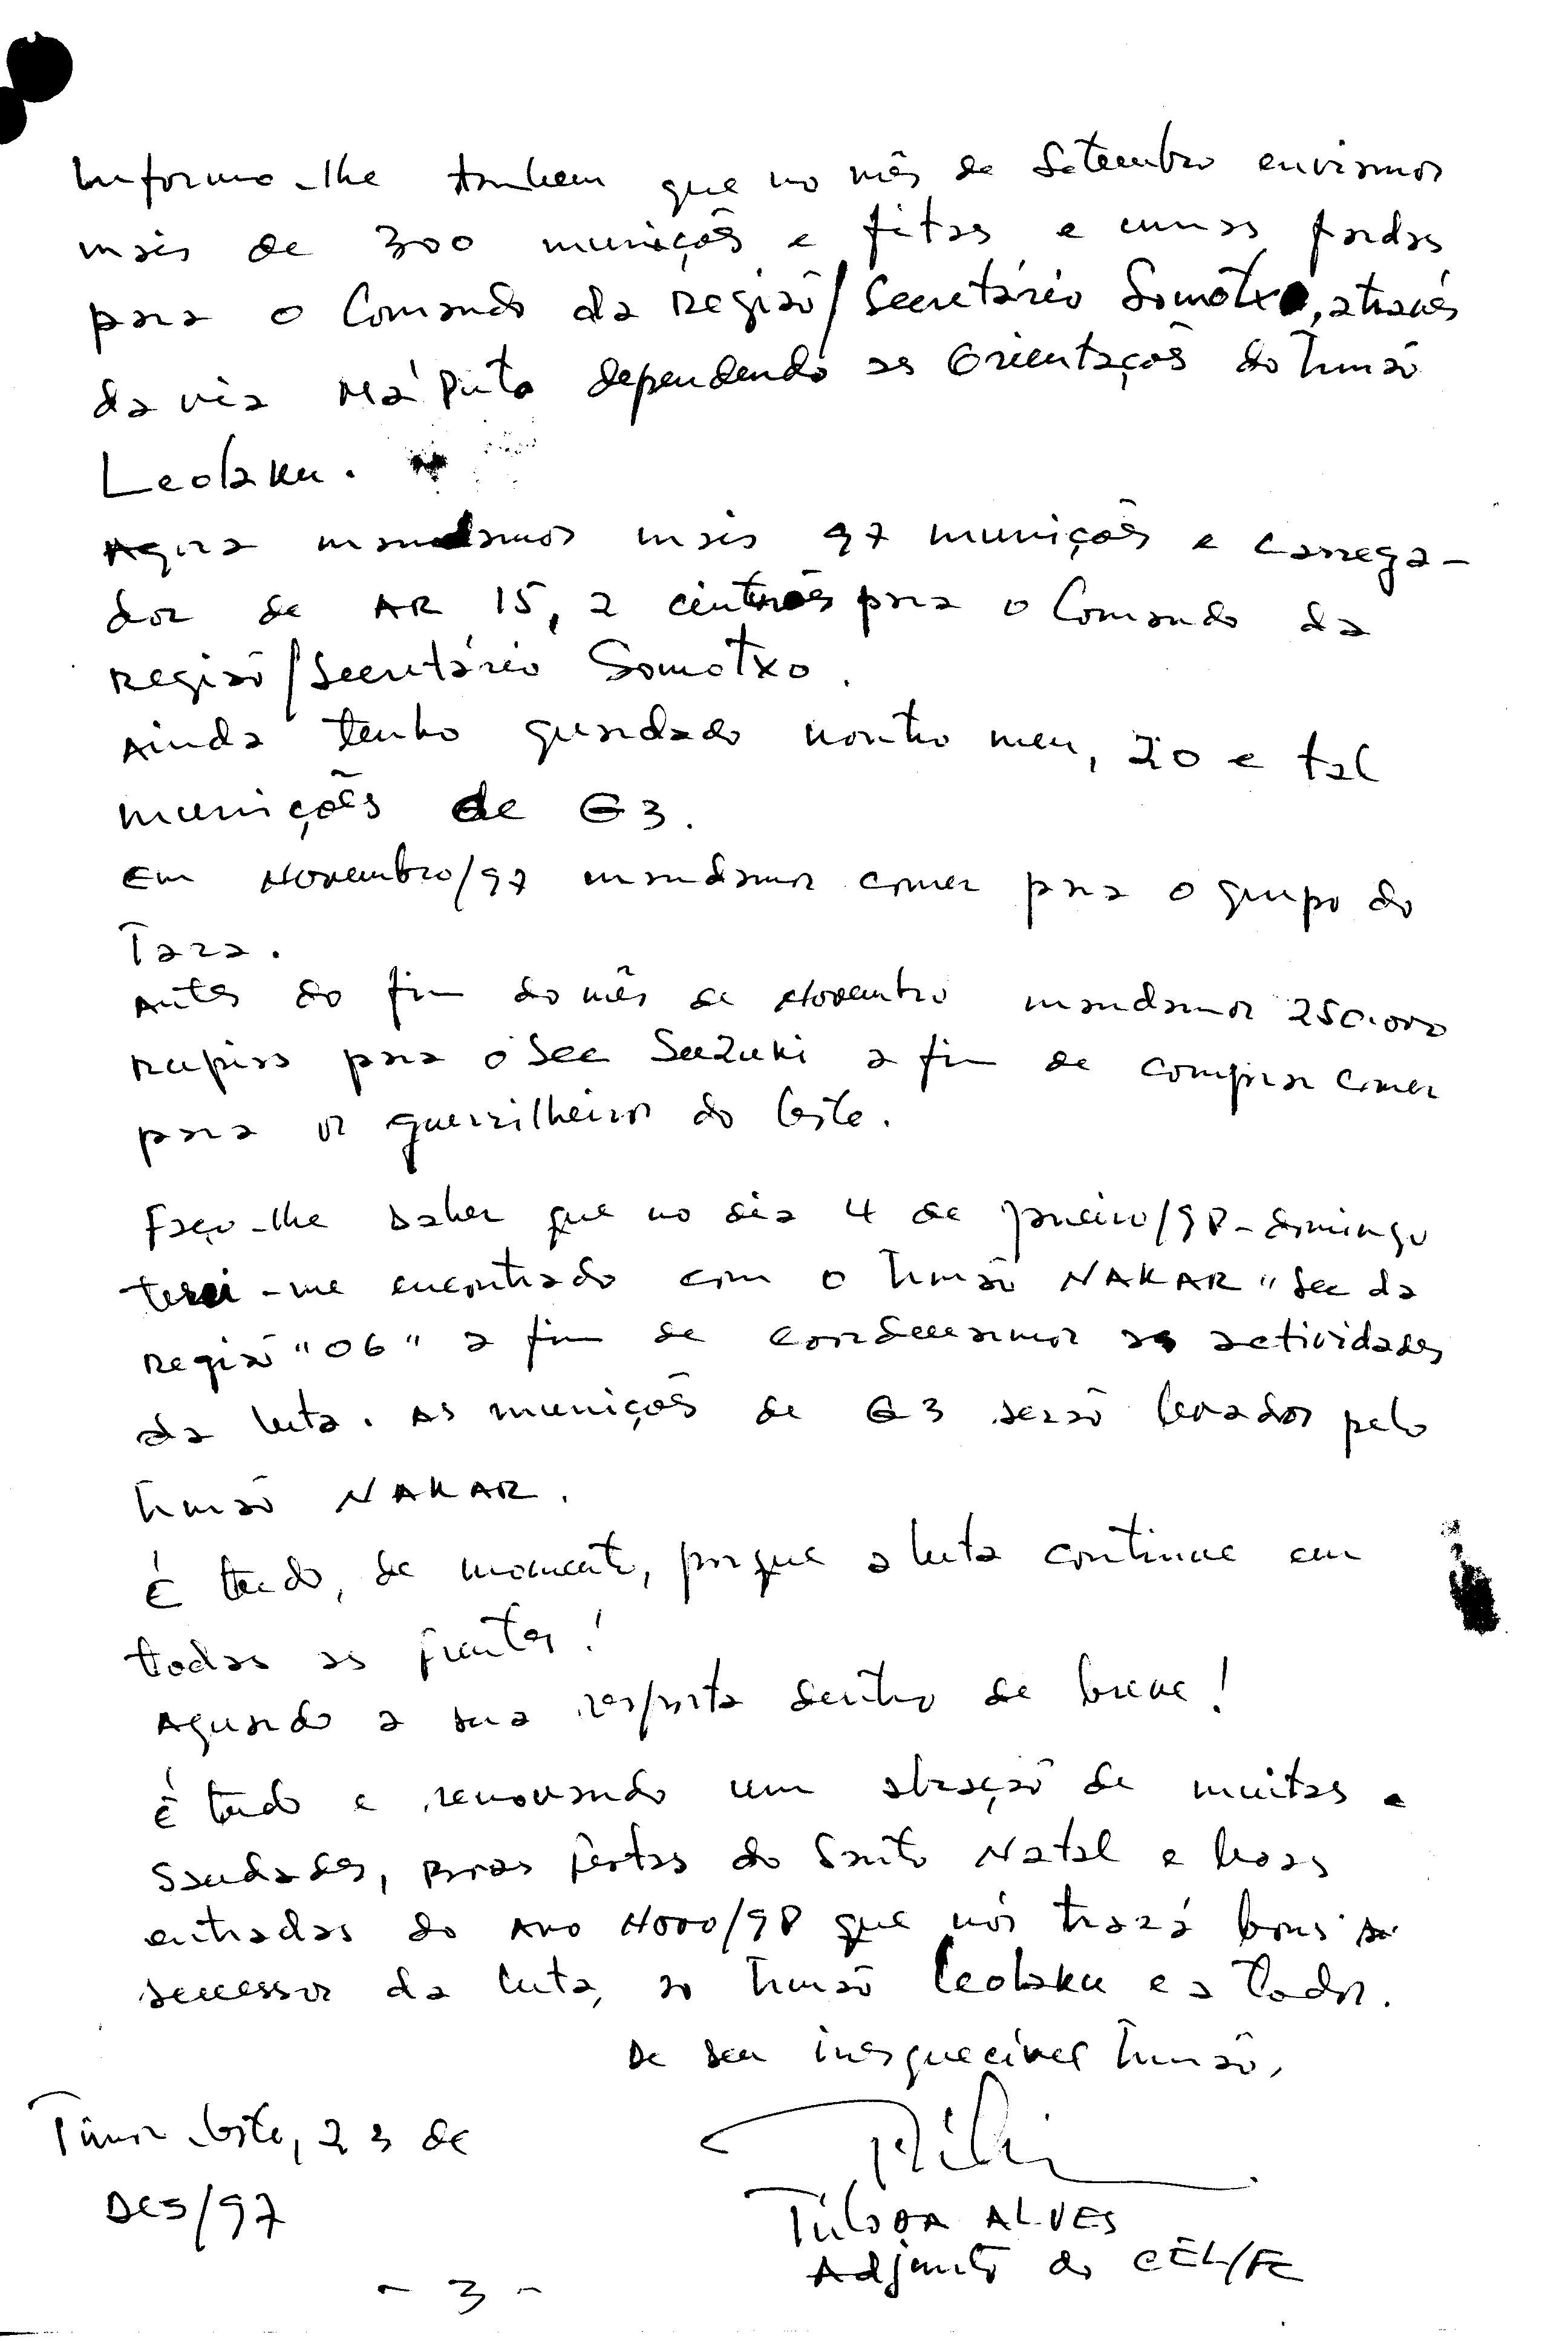 Informo-lhe tambem que no mês de Setembro enviamos
mais de 300 munições e fitas e umas fardas
para o Comando da Região/Secretário Somotxo, através
da via Má'Puto dependendo as Orientações do Irmão
Leolaku.
Agora mandamos mais 97 munições e carrega-
dor de AR 15, 2 cintrões para o Comando da
Região/Secretário Somotxo.
Ainda tenho guardado noutro meu, 20 e tal
munições de G3.
Em Novembro/97 mandamos comer para o grupo do
Tara.
Antes do fim do mês de Novembro mandamos 250.000
rupias para o Sec Suzuki a fim de comprar comer
para os guerrilheiros do leste.
Faço-lhe saber que no dia 4 de Janeiro/98-domingo
terei-me encontrado com o Irmão NAKAR "Sec da
Região "06" a fim de coordenarmos as actividades
da luta. As munições de G3 serão levados pelo
Irmão NAKAR.
É tudo, de momento, porque a luta continue em
todas as frentes!
Aguardo a sua resposta dentro de breve!
É tudo e renovando um abração de muitas
saudades, Boas festas do Santo Natal e boas
entradas do Ano Novo/98 que nós trará bons
sucessos da luta, ao Irmão Leolaku e a todos.
De seu inesquecível Irmão,
Timor-leste, 23 de
DES/97
ALVES
Adjunto do CEL/FC
- 3 -